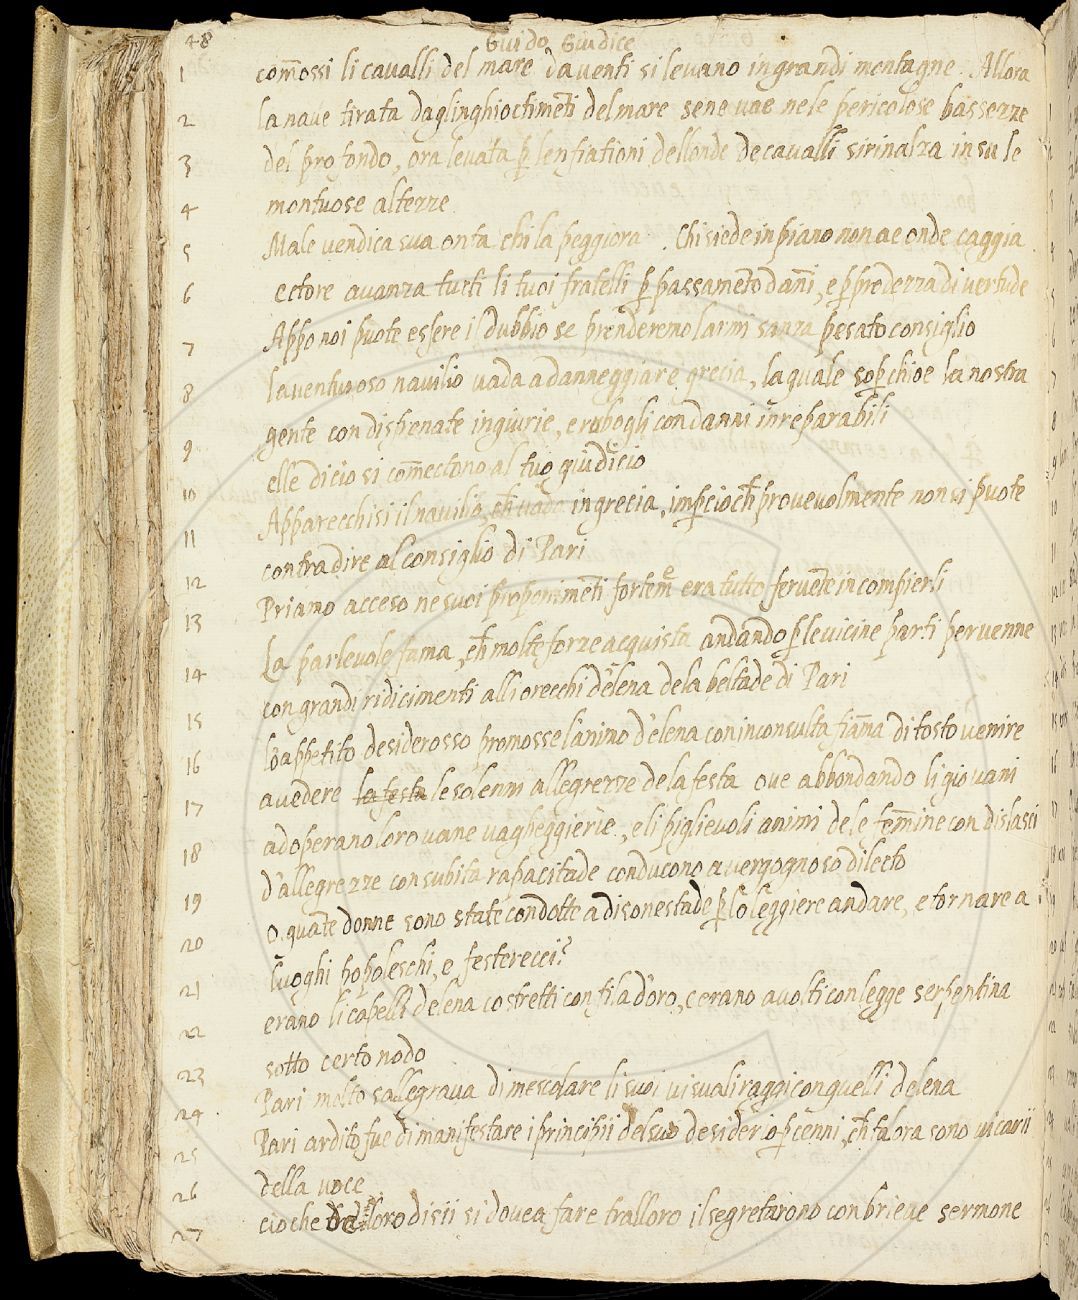 48
Guido Giudice
1 com̃ossi li cavalli del mare da venti si levano in grandi montagne. Allora
2 la nave tirata dagl inghioctimẽti del mare sene vae nele pericolose bassezze
3 del profondo, ora levata ꝑ lenfiationi dellonde de cavalli si rinalza in su le
4 montuose altezze
5 Male vendica sua onta chi la peggiora. Chi siede in piano non ae onde caggia
6 ectore avanza tucti li tuoi fratelli ꝑ passamẽto danni, e ꝑ prodezza di vertude
7 Appo noi puote essere il dubbio se prenderemo larmi sanza pesato consiglio
8 la venturoso navilio vada a danneggiare grecia, la quale soꝑchioe la nostra
9 gente con disfrenate ingiurie, e rubogli con danni inreparabili
10 elle dicio si com̃ectono al tuo giudicio
11 Apparecchisi il navilio, ch̃ vada in grecia, imꝑcioch̃ provevolmente non si puote
12 contradire al consiglio di Pari
13 Priamo acceso ne suoi proponimẽti fortem̃e era tutto fervẽte in compierli
14 La parlevole fama, ch̃ molte forze acquista andando ꝑ le vicine parti pervenne
15 con grandi ridicimenti alli orecchi d'elena dela beltade di Pari
16 lo appetito desiderosso promosse l'animo d'elena con inconsulta fiam̃a di tosto venire
17 a vedere la festa le solenni allegrezze de la festa ove abbondando li giovani
18 adoperano loro vane vagheggierie, e li piglievoli animi dele fem̃ine con dislasci
19 d'allegrezze con subita rapacitade conducono a vergognoso dilecto
20 o quãte donne sono state condotte a disonestade ꝑ lo leggiere andare, e tornare a i
21 luoghi popoleschi, e festerecci?
22 erano li capelli delena costretti con fila d'oro, e erano avolti con legge serpentina
23 sotto certo nodo
24 Pari molto sallegrava di mescolare li suoi visuali raggi con quelli delena
25 Pari ardito fue di manifestare i principii del suo desiderio ꝑ cenni, ch̃ talora sono vicarii
26 della voce
27 cio che de loro disii si dovea fare tralloro il segretarono con brieve sermone